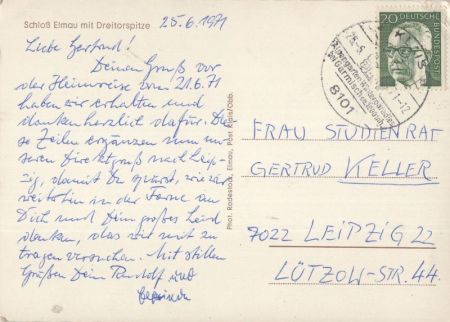 Schloß Elmau mit Dreitorspitze
25.6.1971
Liebe Gertrud!
Deinen Gruß vor
der Heimreise vom 21.6.71
haben wir erhalten und
danken herzlich dafür. Die-
se Zeilen ergänzen nun un-
seren Direktgruß nach Leip-
zig, damit Du spürst, wie wir
weiterhin in der Ferne an
Dich und Dein großes Leid
denken, das wir mit zu
tragen versuchen. Mit stillen
Grüßen Dein Rudolf und
Phot. Rodestock, Elmau, Post Klais/Obb.
20
DEUTSCHE
BUNDESPOST
8101
FRAU STUDIENRAT
GERTRUD KELLER
7022 LEIPZIG 22
LÜTZOW-STR. 44